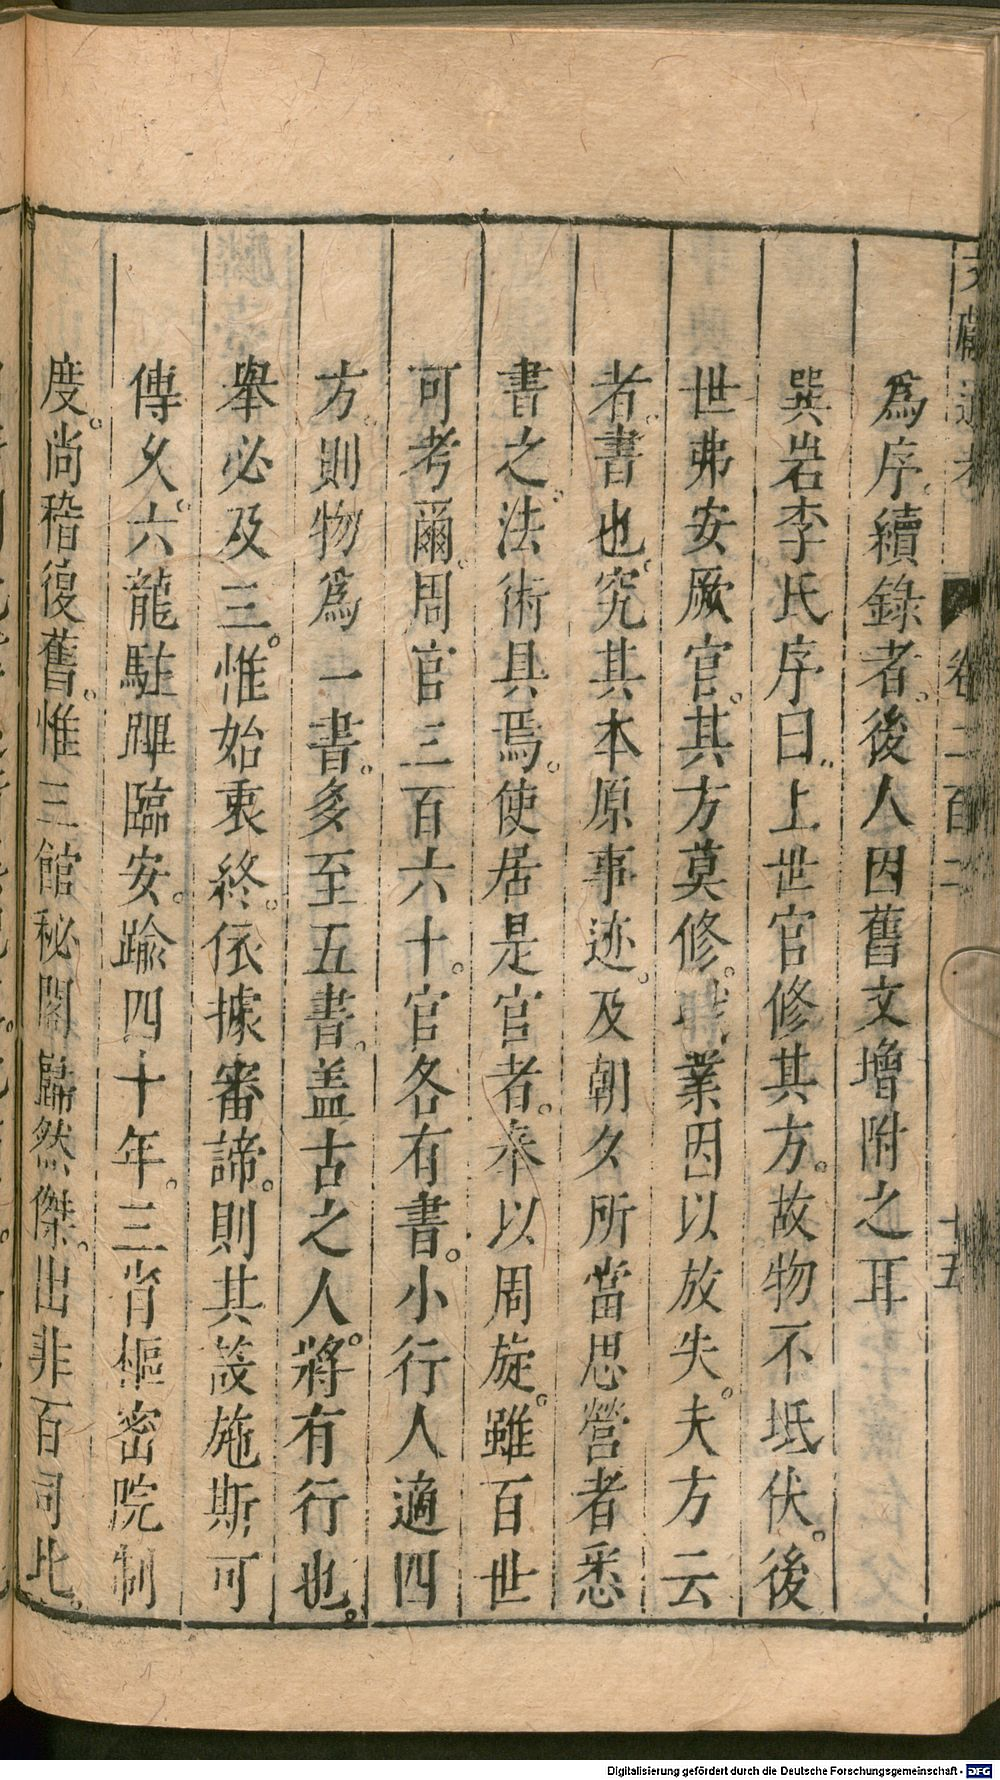 文獻通考 卷二百二 十五
爲序續錄者後人因舊文增附之耳
巽岩李氏序曰上世官修其方故物不坻伏後
世弗安厥官其方莫修職業因以放失夫方云
者書也究其本原事迹及朝夕所當思營者悉
書之法術具焉使居是官者奉以周旋雖百世
可考爾周官三百六十官各有書小行人適四
方則物爲一書多至五書盖古之人將有行也
舉必及三惟始衷終依據審諦則其設施斯可
傳久六龍駐蹕臨安踰四十年三省樞密院制
度尚稽復舊惟三館秘閣巋然傑出非百司比
Digitalisierung gefördert durch die Deutsche Forschungsgemeinschaft - DFG